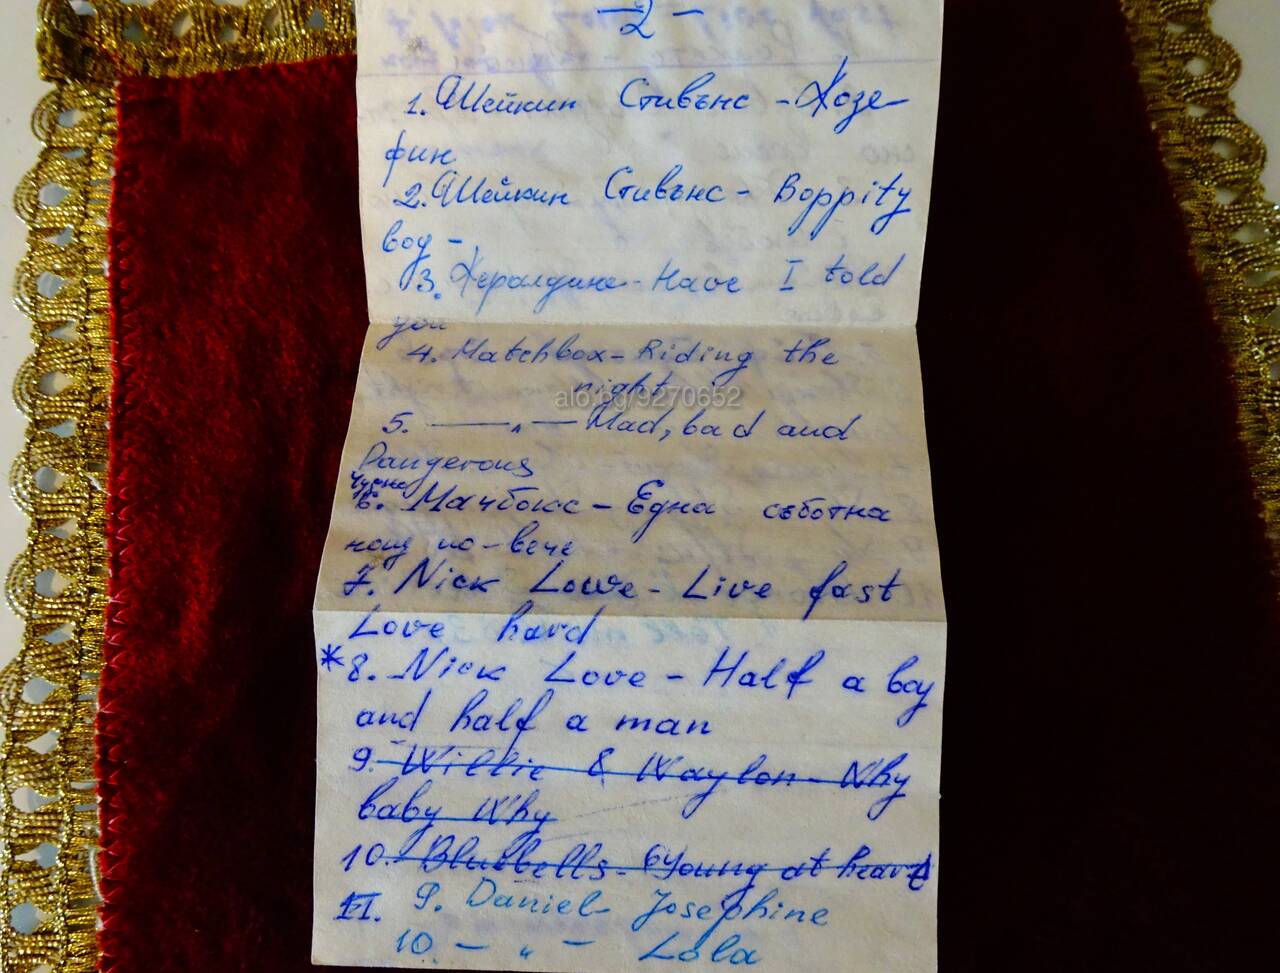 - 2 -
1. Шейкин Стивънс - Жозе
фин
2. Шейкин Стивънс - Boppity
bop -
3. Жералдине - Have I told
you
4. Matchbox - Riding the
night
alo.bg/9270652
5. —„— Mad, bad and
Dangerous
Чудна
6. Мачбокс - Една съботна
нощ по-вече
7. Nick Lowe - Live fast
Love hard
* 8. Nick Love - Half a boy
and half a man
9. Willie & Waylon - Why
baby Why
10. Bluebells - Young at heart
II. 9. Daniel Josephine
10. — „ — Lola